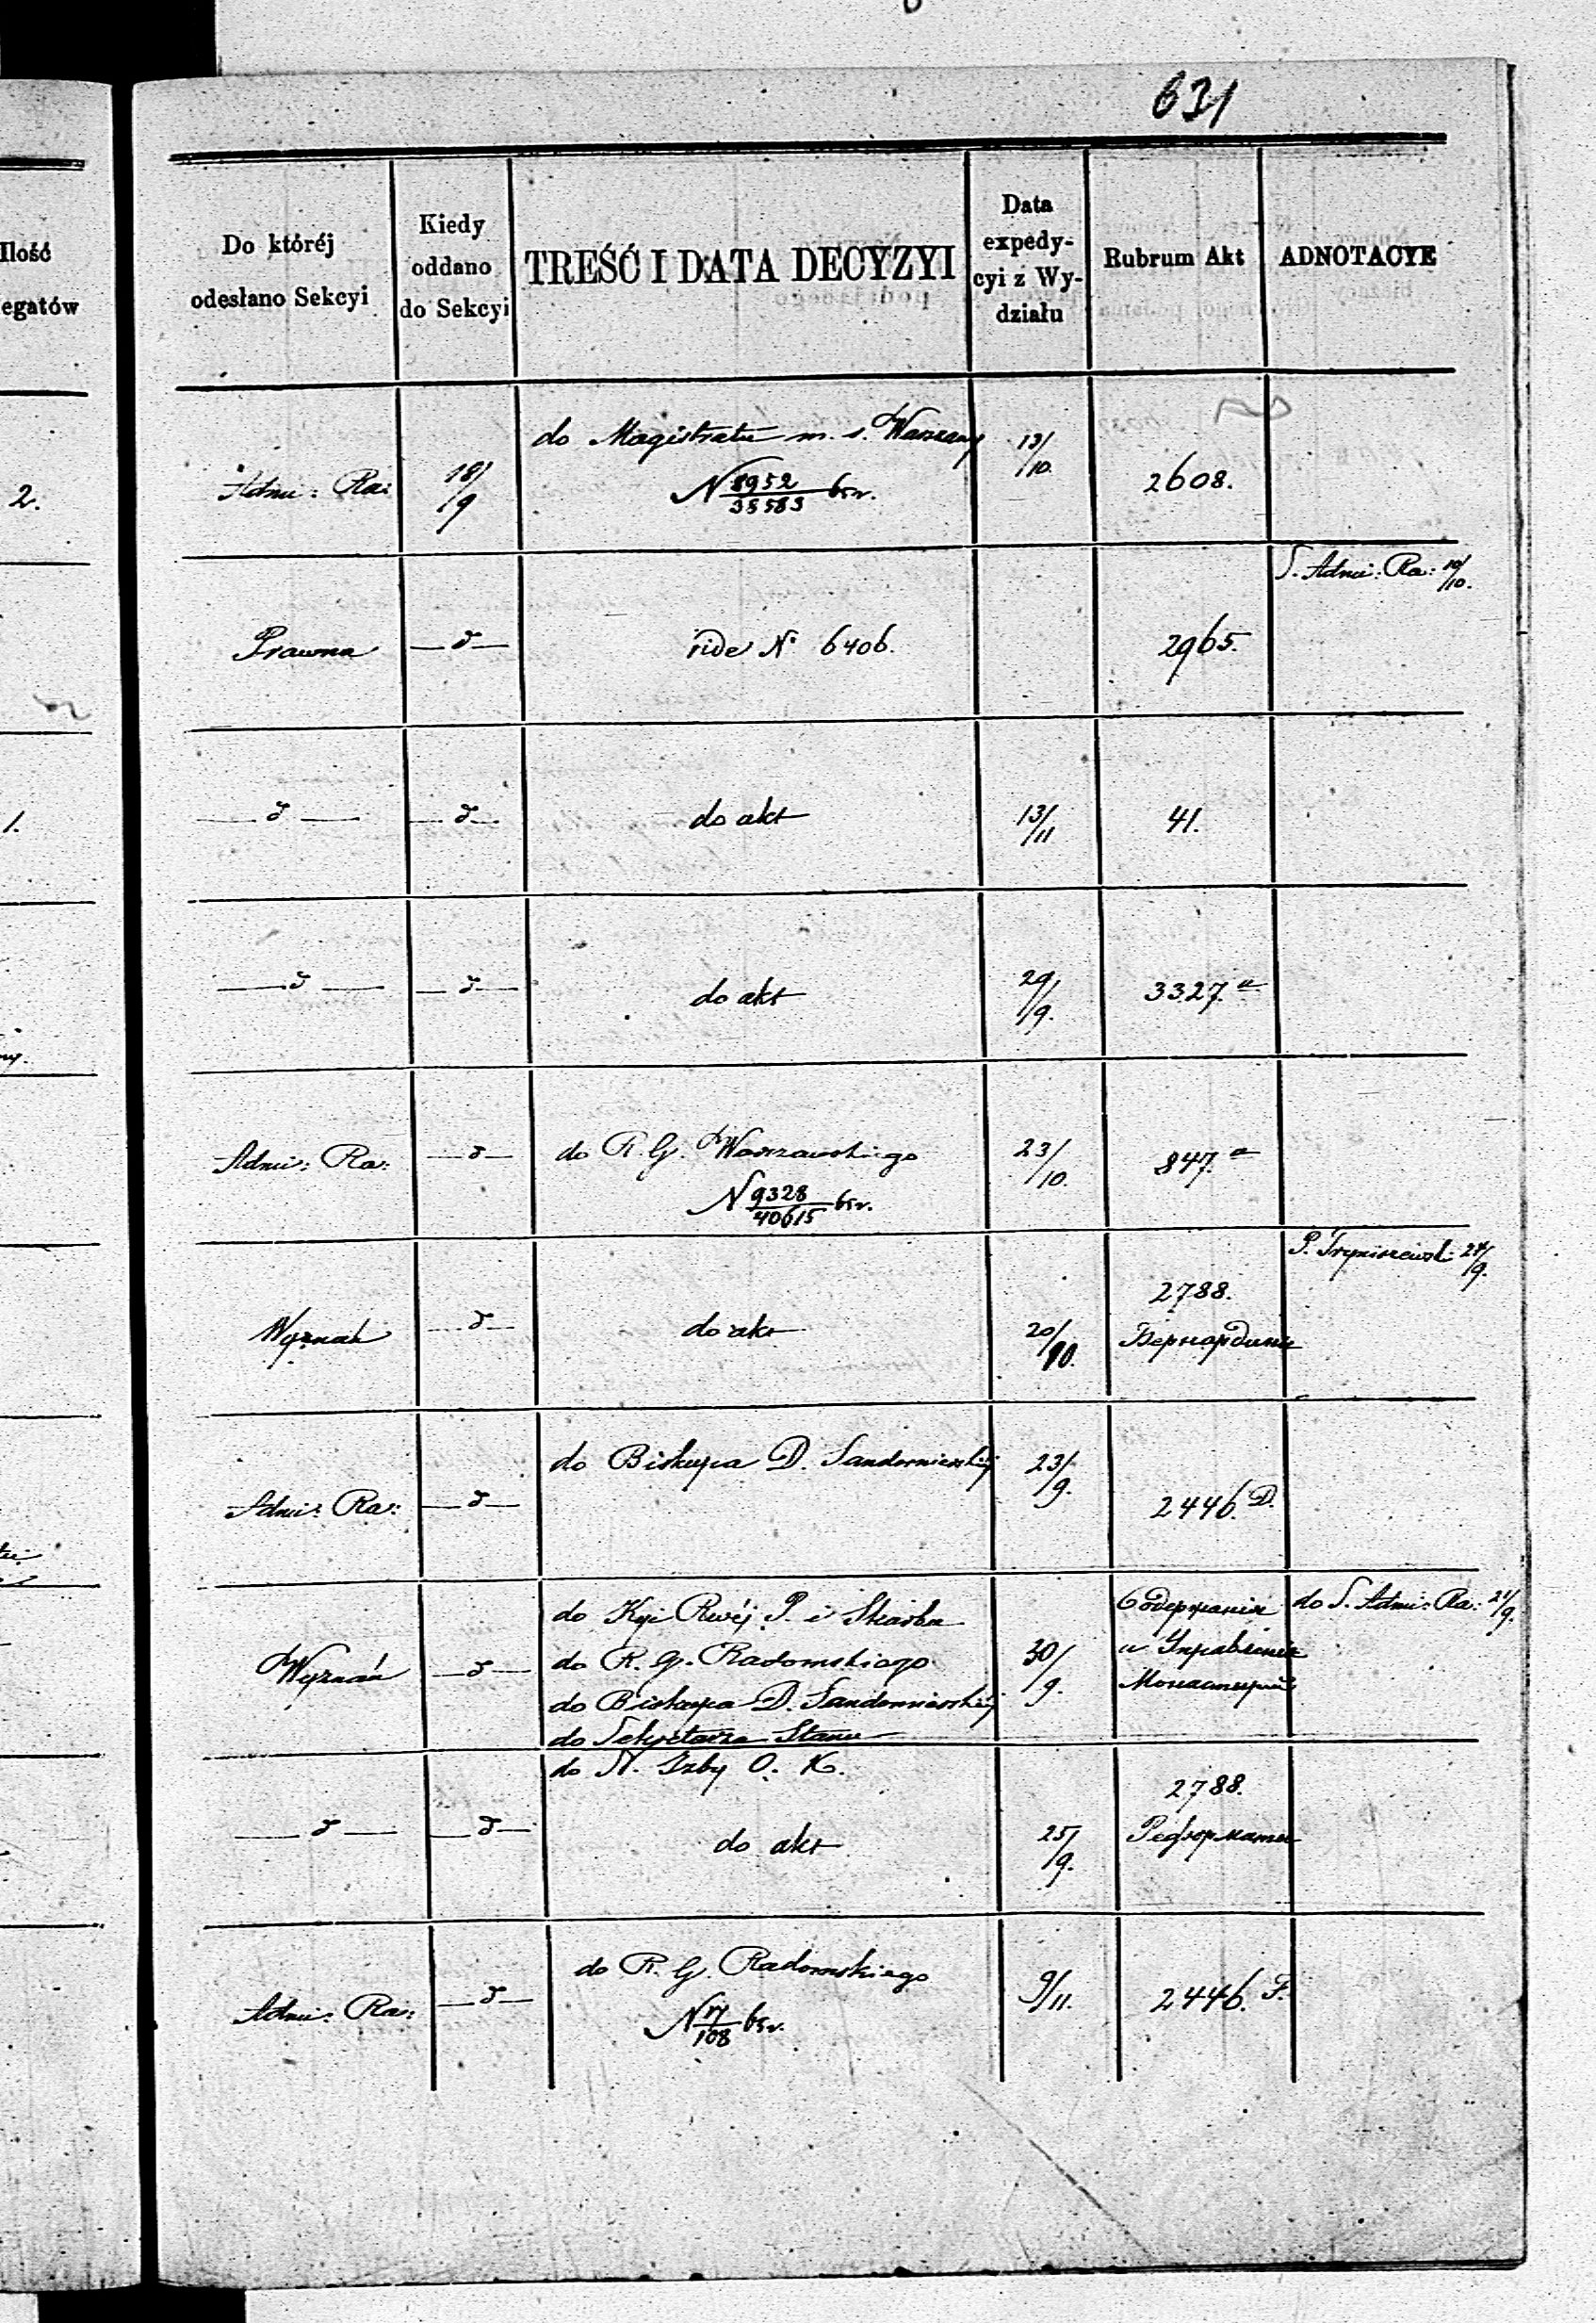 631
Ilość
egatów
Do któréj
odesłano Sekcyi
Kiedy
oddano
do Sekcyi
TREŚĆ I DATA DECYZYI
Data
expedy-
cyi z Wy-
działu
Rubrum Akt
ADNOTACYE
2.
Admi: Ra:
18/9
do Magistratu m. s. Warszawy
N 8952/38583 65r.
13/10.
2608.
S. Admi: Ra: 10/10.
Prawna
— d —
vide N° 6406.
2965.
1.
— d —
— d —
do akt
13/11
41.
— d —
— d —
do akt
29/9.
3327. a
Admi: Ra:
— d —
do R. G. Warszawskiego
N 9328/40615 65r.
23/10.
847. a
Wyznań
— d —
do akt
20/10.
2788.
Бернардины
P. 24/9.
Admi: Ra:
— d —
do Biskupa D. Sandomierskiéj
23/9.
2446. D.
Wyznań
— d —
do Kyi Rwéj P. i Skarbu
do R. G. Radomskiego
do Biskupa D. Sandomierskiéj
do Sekretarza Stanu
do N. Izby O. K.
30/9.
Содержанія
и Управленія
Монастырей
do S. Admi: Ra: 21/9.
— d —
— d —
do akt
25/9.
2788.
Реформаты
Admi: Ra:
— d —
do R. G. Radomskiego
N 17/108 65r.
9/11.
2446. F.